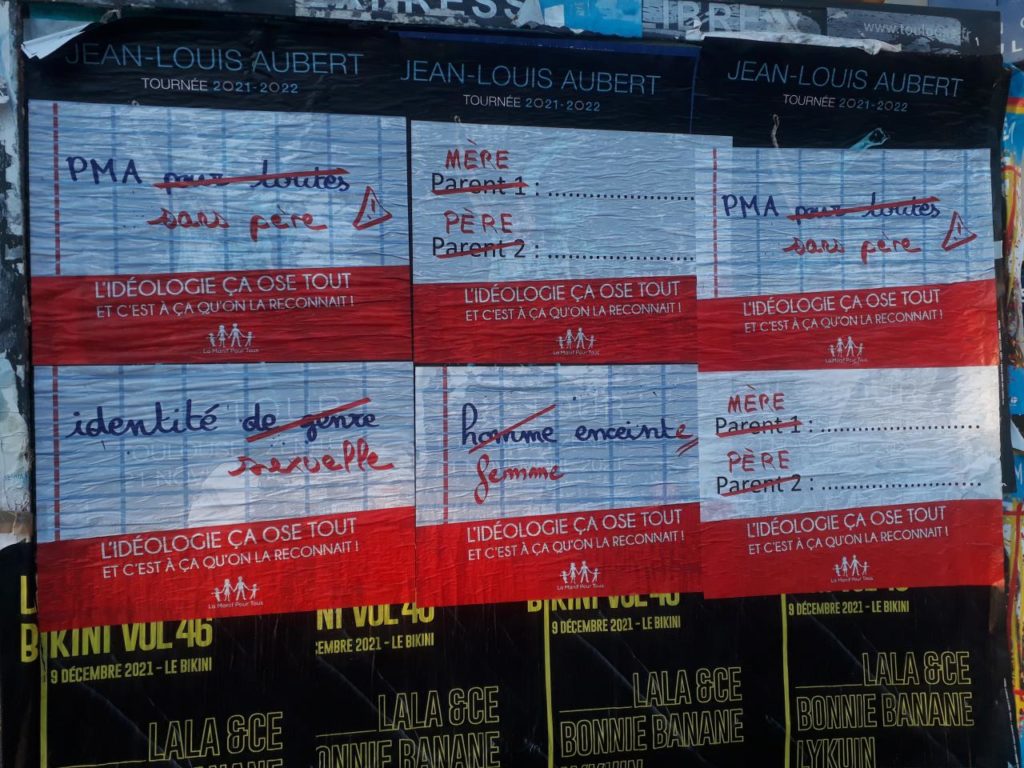 EXPRESS
IBRE
www.toulouse.fr
JEAN-LOUIS AUBERT
TOURNÉE 2021-2022
JEAN-LOUIS AUBERT
TOURNÉE 2021-2022
JEAN-LOUIS AUBERT
TOURNÉE 2021-2022
PMA pour toutes
sans père
L'IDÉOLOGIE ÇA OSE TOUT
ET C'EST À ÇA QU'ON LA RECONNAIT !
La Manif Pour Tous
MÈRE
Parent 1 :
PÈRE
Parent 2 :
L'IDÉOLOGIE ÇA OSE TOUT
ET C'EST À ÇA QU'ON LA RECONNAIT !
La Manif Pour Tous
PMA pour toutes
sans père
L'IDÉOLOGIE ÇA OSE TOUT
ET C'EST À ÇA QU'ON LA RECONNAIT !
La Manif Pour Tous
identité de genre
sexuelle
L'IDÉOLOGIE ÇA OSE TOUT
ET C'EST À ÇA QU'ON LA RECONNAIT !
La Manif Pour Tous
homme enceinte
femme
L'IDÉOLOGIE ÇA OSE TOUT
ET C'EST À ÇA QU'ON LA RECONNAIT !
La Manif Pour Tous
MÈRE
Parent 1 :
PÈRE
Parent 2 :
L'IDÉOLOGIE ÇA OSE TOUT
ET C'EST À ÇA QU'ON LA RECONNAIT !
La Manif Pour Tous
BIKINI VOL 46
9 DÉCEMBRE 2021 - LE BIKINI
LALA &CE
BONNIE BANANE
NI VOL 46
CEMBRE 2021 - LE BIKINI
LALA &CE
ONNIE BANANE
BIKINI VOL 46
9 DÉCEMBRE 2021 - LE BIKINI
LALA &CE
BONNIE BANANE
LYKUIN
9 DÉCEMBRE 2021 - LE BIKINI
LALA &CE
BONNIE BANANE
LYKUIN